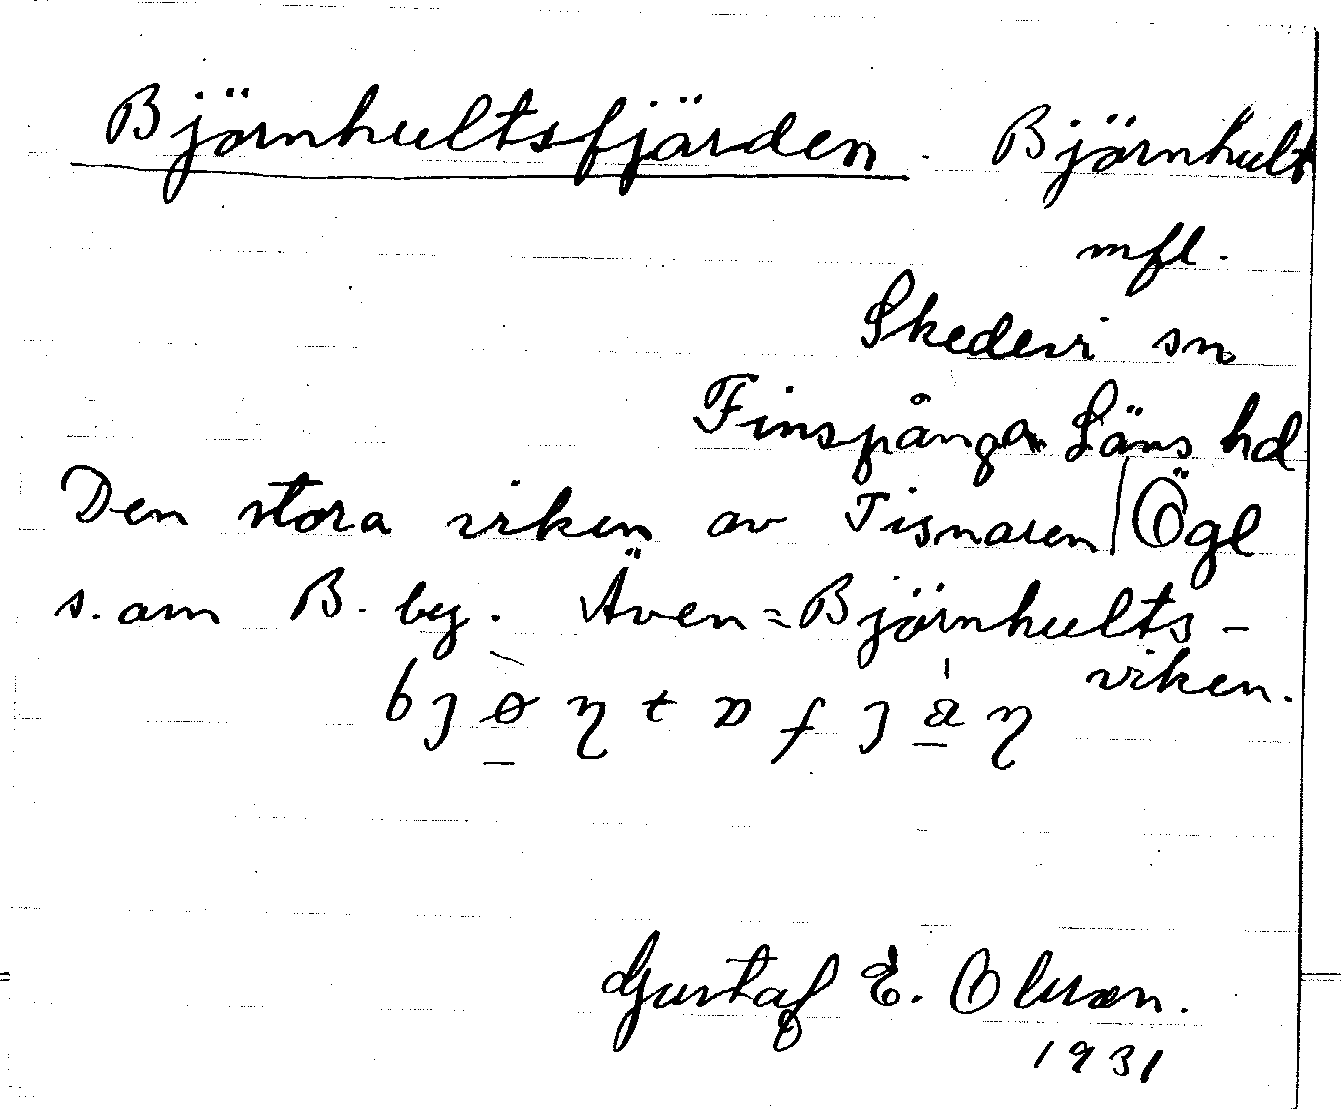 Björnhultsfjärden. Björnhult
mfl.
Skedevi sn
Finspånga Läns hd
Den stora viken av Tisnaren / Ögl
s. om B. by. Även = Björnhults-
viken.
Gustaf E. Olsson.
1931